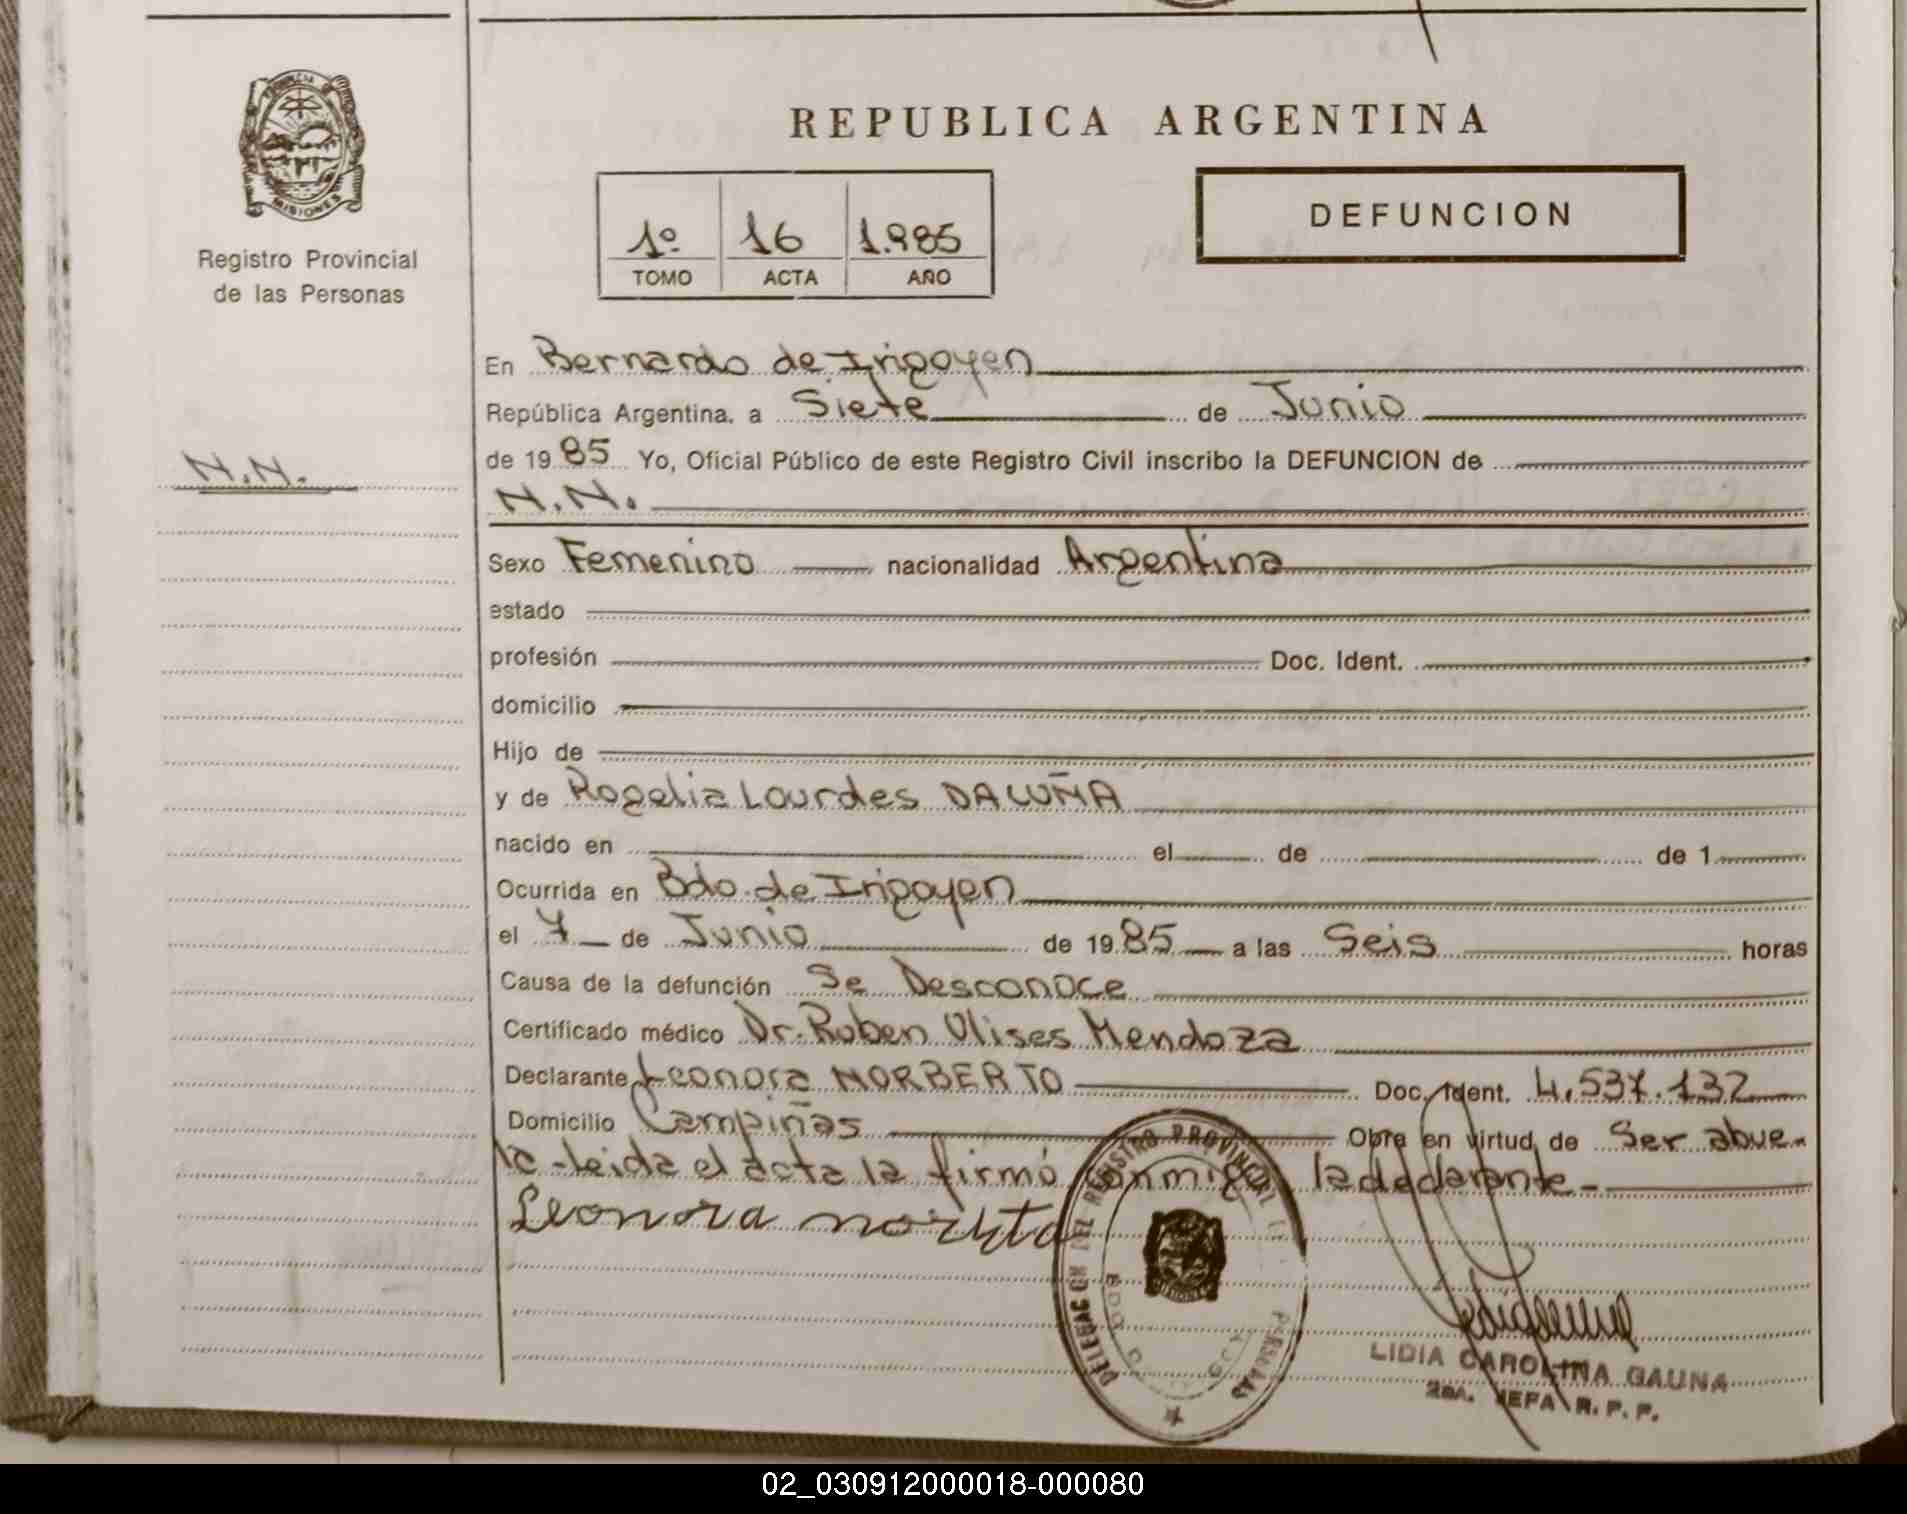 PROVINCIA
MISIONES
Registro Provincial
de las Personas
N.N.
REPUBLICA ARGENTINA
1º 16 1.985
TOMO ACTA AÑO
DEFUNCION
En Bernardo de Irigoyen
República Argentina, a Siete de Junio
de 1985 Yo, Oficial Público de este Registro Civil inscribo la DEFUNCION de
N.N.
Sexo Femenino nacionalidad Argentina
estado
profesión Doc. Ident.
domicilio
Hijo de
y de Rogelia Lourdes DACUÑA
nacido en el de de 1
Ocurrida en Bdo. de Irigoyen
el 7 de Junio de 1985 a las Seis horas
Causa de la defunción Se Desconoce
Certificado médico Dr. Ruben Ulises Mendoza
Declarante Leonora NORBERTO Doc. Ident. 4.537.132
Domicilio Campiñas Obra en virtud de Ser abue-
la - leida el acta la firmó conmigo la declarante -
Leonora
DELEGACION DEL REGISTRO PROVINCIAL PERSONAS
LIDIA CAROLINA GAUNA
2da. JEFA R. P. P.
02_030912000018-000080